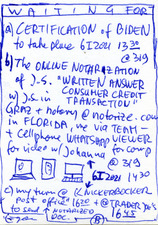 WAITING FOR
a) CERTIFICATION OF BIDEN
to take place 6I2021 1330
@ 349
b) The ONLINE NOTARIZATION
of J.S. "WRITTEN ANSWER
CONSUMER CREDIT
w J.S. in TRANSACTION"
GRAZ + notary @ notarize.com
in FLORIDA, we via TEAM-
+ Cellphone WHATSAPP VIEWER
for video w/ Johanna for comp
@ 349
6I 2021
1430
c) my turn @ KNICKERBOCKER
post office 1620 + @ TRADER Joe's
to send NOTARIZED 1645
DOC.